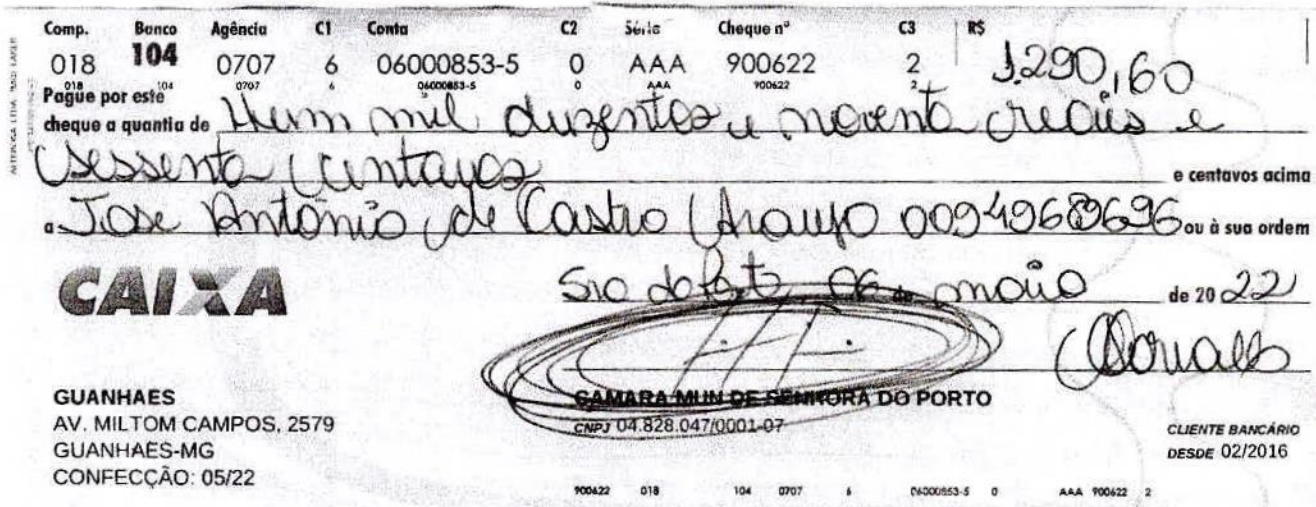 Comp. Banco Agência C1 Conta C2 Série Cheque nº C3 R$
018 104 0707 6 06000853-5 0 AAA 900622 2 1.290,60
018 104 0707 6 06000853-5 0 AAA 900622 2
Pague por este
cheque a quantia de Hum mil duzentos e noventa reais e
sessenta centavos e centavos acima
a Jose Antônio de Castro Araujo 00949689696 ou à sua ordem
CAIXA
Sra do Porto, 06 de maio de 20 22
GUANHAES
AV. MILTOM CAMPOS, 2579
GUANHAES-MG
CONFECÇÃO: 05/22
CAMARA MUN DE SENHORA DO PORTO
CNPJ 04.828.047/0001-07
CLIENTE BANCÁRIO
DESDE 02/2016
900622 018 104 0707 6 06000853-5 0 AAA 900622 2